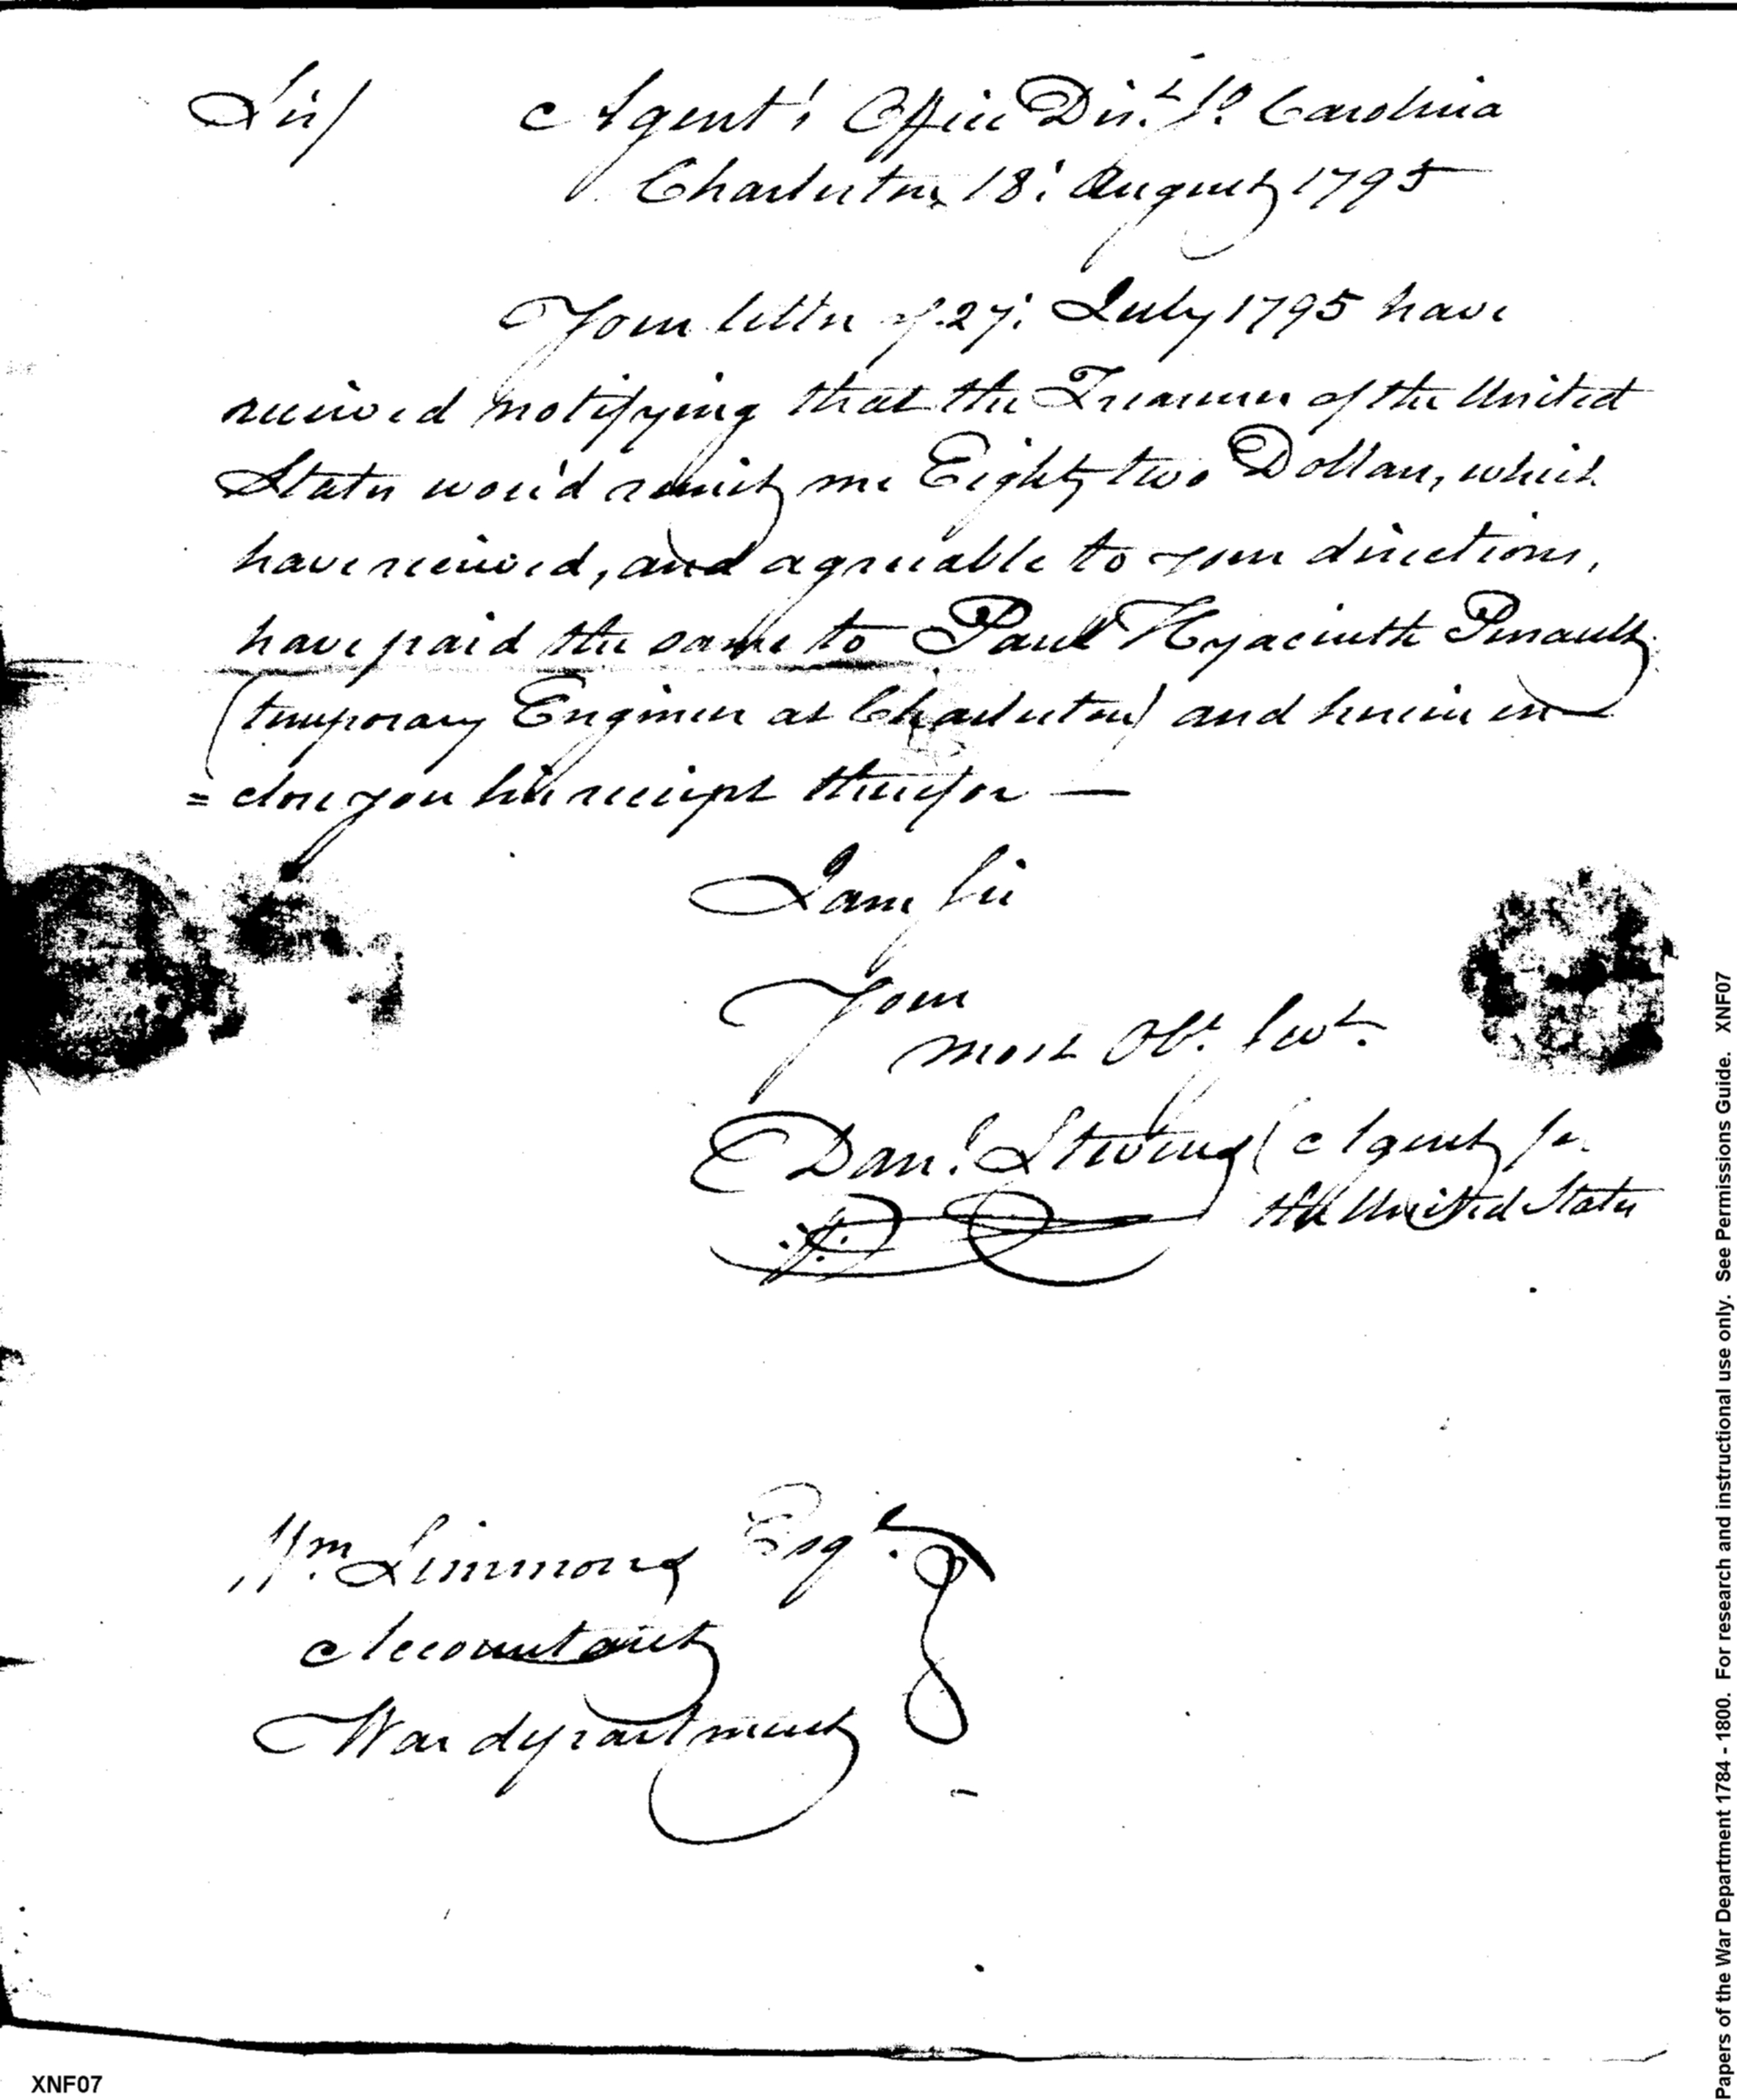 Sir/ Agent's Office Dist. So. Carolina
Charleston 18: August 1795
Your letter of 27: July 1795 have
received notifying that the Treasurer of the United
States wou'd remit me Eighty two Dollars, which
have received, and agreeable to your directions,
have paid the same to Paul Hyacinth Perrault
(temporary Engineer at Charleston) and herein en
= close you his receipt therefor —
I am Sir
Your
most Obt. Servt.
Danl. Stevens Agent for
the United States
Wm. Simmons Esqr.
Accountant
War department
XNF07
Papers of the War Department 1784 - 1800. For research and instructional use only. See Permissions Guide. XNF07